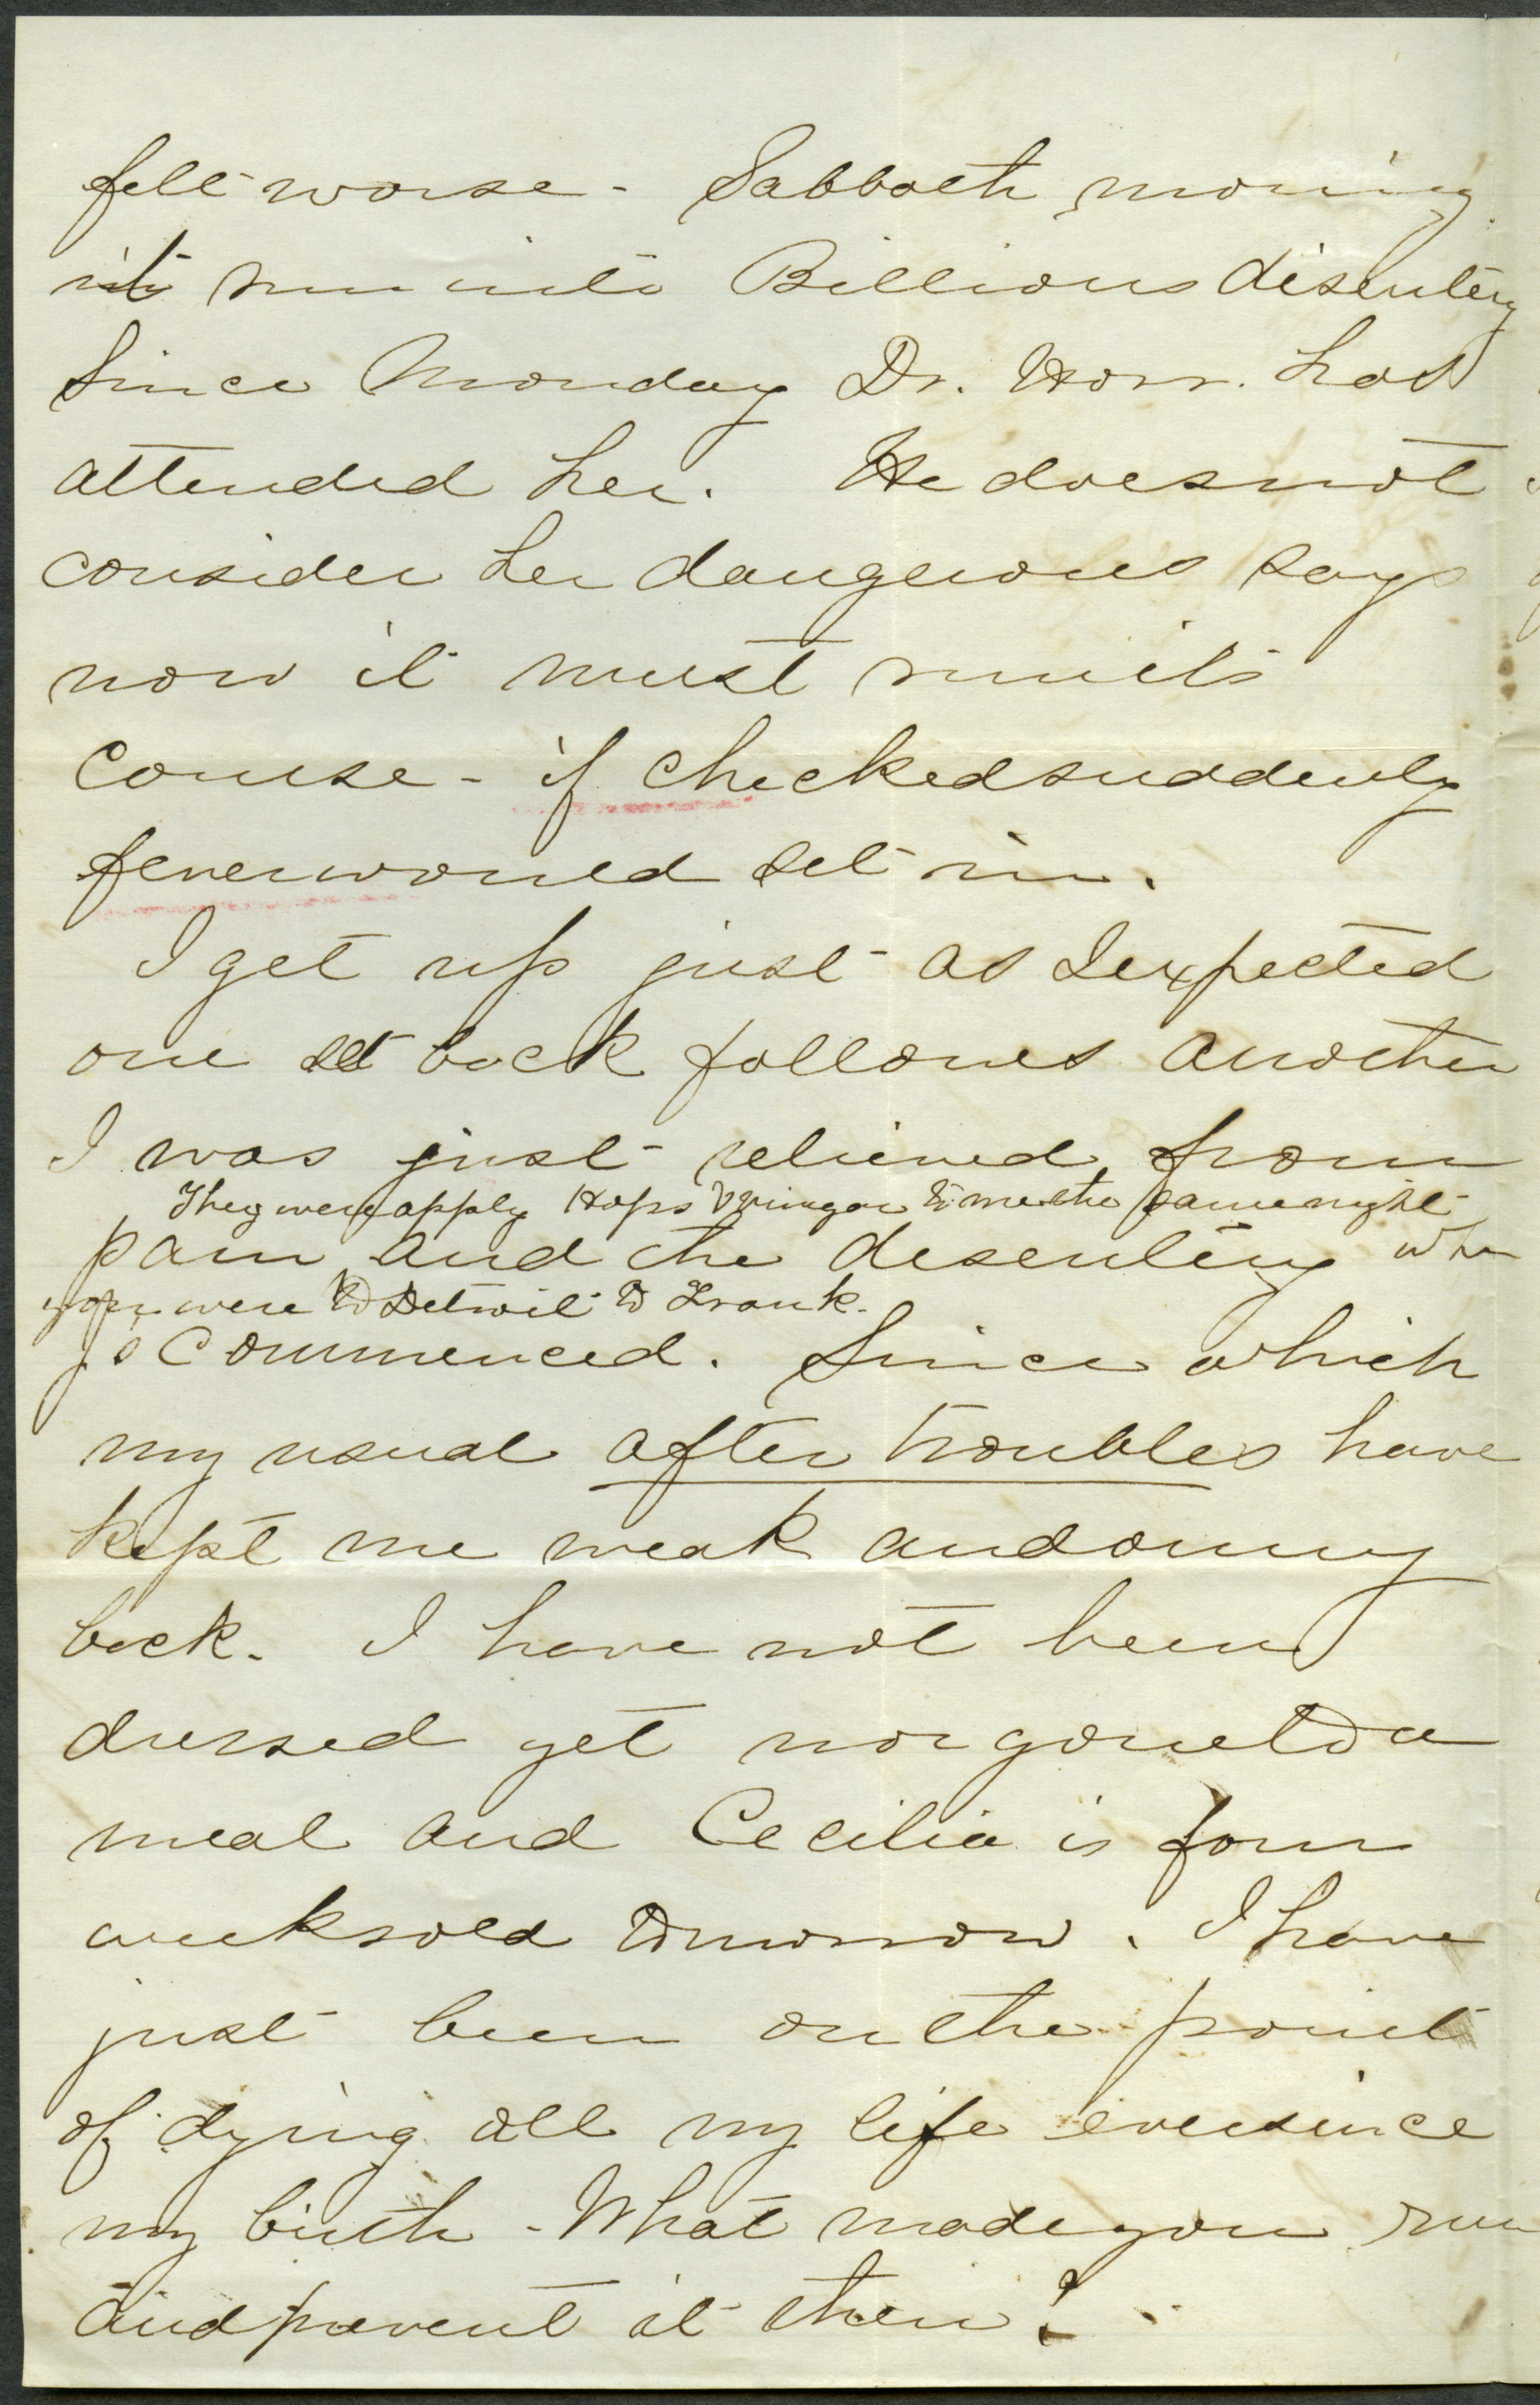 felt worse - Sabbath morning
it run into Billious disentery
Since Monday Dr. Horr. has
attended her. He does not
consider her dangerous says
now it must run its
course - if checked suddenly
fever would set in.
I get up just as I expected
one set back follows another
I was just relieved from
They were apply Hops & Vinegar to me the same night
pain and the desentery when
you were to Detroit to Frank.
commenced. Since which
my usual after troubles have
kept me weak and on my
back. I have not been
dressed yet nor gone to a
meal and Cecilia is four
weeks old tomorrow. I have
just been on the point
of dying all my life ever since
my birth - What made you run
and prevent it then?